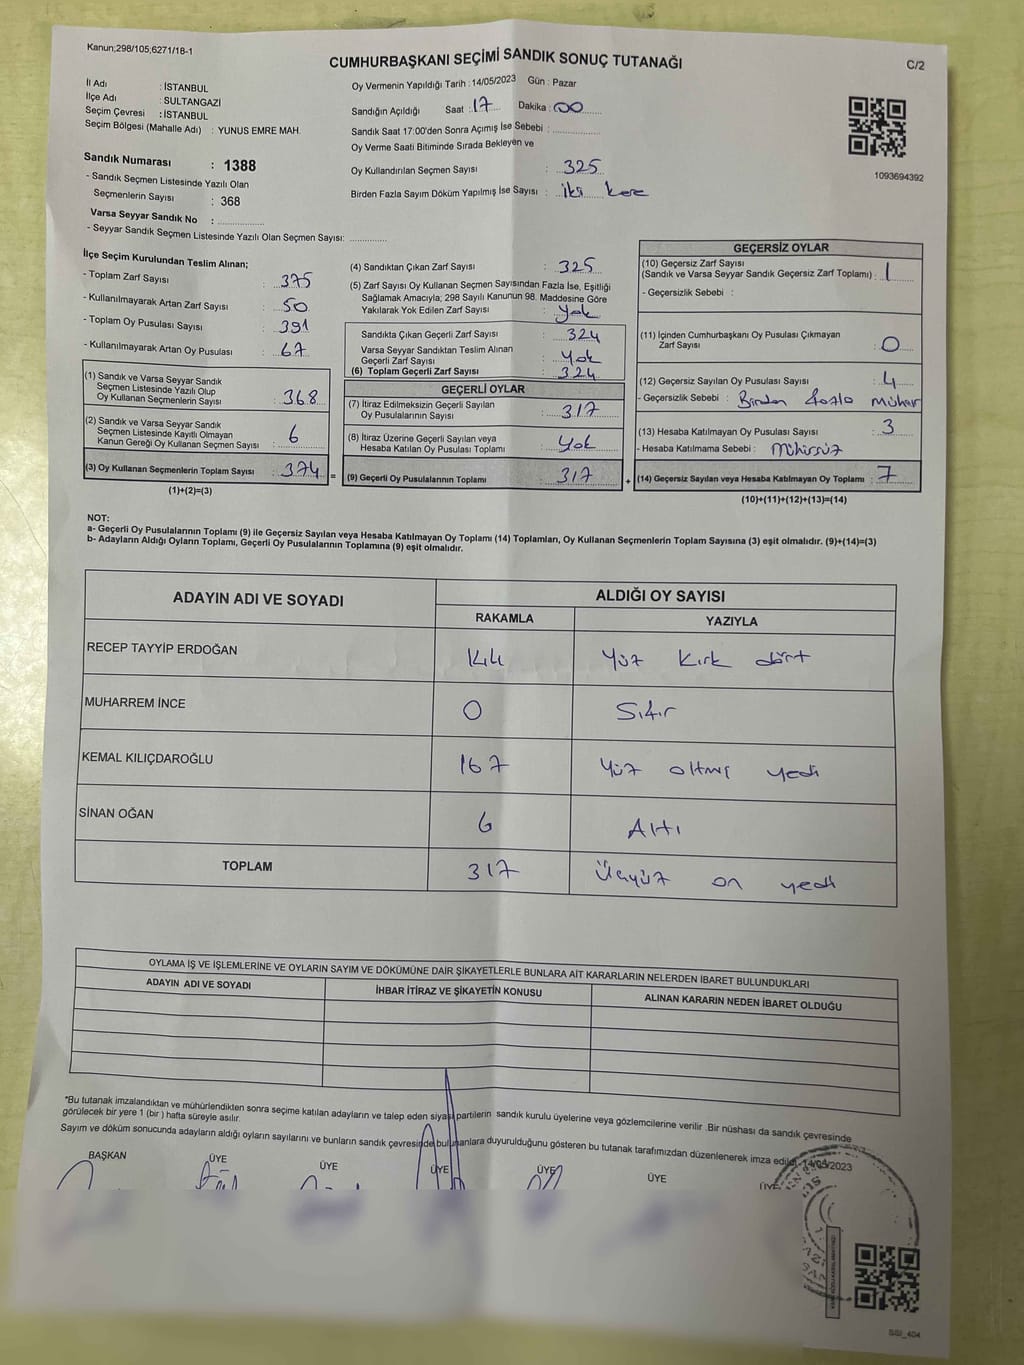 Kanun;298/105;6271/18-1
CUMHURBAŞKANI SEÇİMİ SANDIK SONUÇ TUTANAĞI
C/2
İl Adı : İSTANBUL
İlçe Adı : SULTANGAZİ
Seçim Çevresi : İSTANBUL
Seçim Bölgesi (Mahalle Adı) : YUNUS EMRE MAH.
Oy Vermenin Yapıldığı Tarih : 14/05/2023 Gün : Pazar
Sandığın Açıldığı Saat : 17 Dakika : 00
Sandık Saat 17:00'den Sonra Açımış İse Sebebi :
Oy Verme Saati Bitiminde Sırada Bekleyen ve
Oy Kullandırılan Seçmen Sayısı : 325
Birden Fazla Sayım Döküm Yapılmış İse Sayısı : iki kere
1093694392
Sandık Numarası : 1388
- Sandık Seçmen Listesinde Yazılı Olan
Seçmenlerin Sayısı : 368
Varsa Seyyar Sandık No :
- Seyyar Sandık Seçmen Listesinde Yazılı Olan Seçmen Sayısı:
İlçe Seçim Kurulundan Teslim Alınan;
- Toplam Zarf Sayısı : 375
- Kullanılmayarak Artan Zarf Sayısı : 50
- Toplam Oy Pusulası Sayısı : 391
- Kullanılmayarak Artan Oy Pusulası : 67
(1) Sandık ve Varsa Seyyar Sandık
Seçmen Listesinde Yazılı Olup
Oy Kullanan Seçmenlerin Sayısı : 368
(2) Sandık ve Varsa Seyyar Sandık
Seçmen Listesinde Kayıtlı Olmayan
Kanun Gereği Oy Kullanan Seçmen Sayısı : 6
(3) Oy Kullanan Seçmenlerin Toplam Sayısı : 374 =
(1)+(2)=(3)
(4) Sandıktan Çıkan Zarf Sayısı : 325
(5) Zarf Sayısı Oy Kullanan Seçmen Sayısından Fazla İse, Eşitliği
Sağlamak Amacıyla; 298 Sayılı Kanunun 98. Maddesine Göre
Yakılarak Yok Edilen Zarf Sayısı : Yok
Sandıkta Çıkan Geçerli Zarf Sayısı : 324
Varsa Seyyar Sandıktan Teslim Alınan
Geçerli Zarf Sayısı : Yok
(6) Toplam Geçerli Zarf Sayısı : 324
GEÇERLİ OYLAR
(7) İtiraz Edilmeksizin Geçerli Sayılan
Oy Pusulalarının Sayısı : 317
(8) İtiraz Üzerine Geçerli Sayılan veya
Hesaba Katılan Oy Pusulası Toplamı : Yok
(9) Geçerli Oy Pusulalarının Toplamı : 317 +
GEÇERSİZ OYLAR
(10) Geçersiz Zarf Sayısı
(Sandık ve Varsa Seyyar Sandık Geçersiz Zarf Toplamı) : 1
- Geçersizlik Sebebi :
(11) İçinden Cumhurbaşkanı Oy Pusulası Çıkmayan
Zarf Sayısı : 0
(12) Geçersiz Sayılan Oy Pusulası Sayısı : 4
- Geçersizlik Sebebi : Birden fazla mühür
(13) Hesaba Katılmayan Oy Pusulası Sayısı : 3
- Hesaba Katılmama Sebebi : Mühürsüz
(14) Geçersiz Sayılan veya Hesaba Katılmayan Oy Toplamı : 7
(10)+(11)+(12)+(13)=(14)
NOT:
a- Geçerli Oy Pusulalarının Toplamı (9) ile Geçersiz Sayılan veya Hesaba Katılmayan Oy Toplamı (14) Toplamları, Oy Kullanan Seçmenlerin Toplam Sayısına (3) eşit olmalıdır. (9)+(14)=(3)
b- Adayların Aldığı Oyların Toplamı, Geçerli Oy Pusulalarının Toplamına (9) eşit olmalıdır.
ADAYIN ADI VE SOYADI
ALDIĞI OY SAYISI
RAKAMLA YAZIYLA
RECEP TAYYİP ERDOĞAN Yüz Kırk dört
MUHARREM İNCE 0 Sıfır
KEMAL KILIÇDAROĞLU 167 Yüz altmış yedi
SİNAN OĞAN 6 Altı
TOPLAM 317 Üçyüz on yedi
OYLAMA İŞ VE İŞLEMLERİNE VE OYLARIN SAYIM VE DÖKÜMÜNE DAİR ŞİKAYETLERLE BUNLARA AİT KARARLARIN NELERDEN İBARET BULUNDUKLARI
ADAYIN ADI VE SOYADI İHBAR İTİRAZ VE ŞİKAYETİN KONUSU ALINAN KARARIN NEDEN İBARET OLDUĞU
*Bu tutanak imzalandıktan ve mühürlendikten sonra seçime katılan adayların ve talep eden siyasi partilerin sandık kurulu üyelerine veya gözlemcilerine verilir .Bir nüshası da sandık çevresinde
görülecek bir yere 1 (bir ) hafta süreyle asılır.
Sayım ve döküm sonucunda adayların aldığı oyların sayılarını ve bunların sandık çevresinde bulunanlara duyurulduğunu gösteren bu tutanak tarafımızdan düzenlenerek imza edildi. 14/05/2023
BAŞKAN ÜYE ÜYE ÜYE ÜYE ÜYE ÜYE
SSI_404